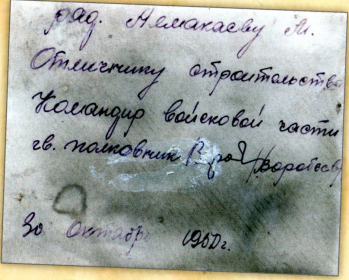 ряд. Нелюкаеву М.
Отличнику строительства
Командир войсковой части
гв. полковник /Воробьев/
30 октября 1950г.